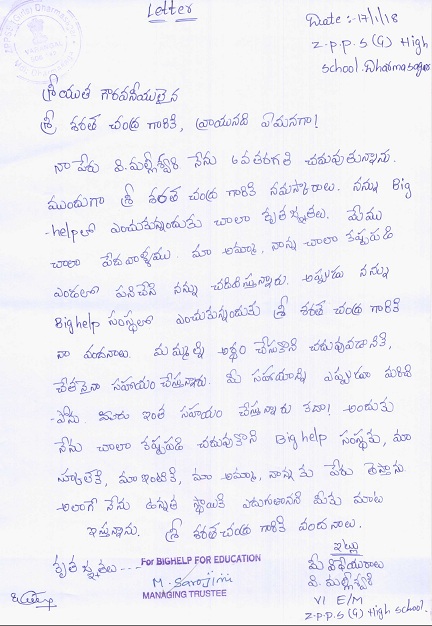 Letter
Date :- 17/1/18
Z.P.P.S (G) High
school. Dharmasagar
శ్రీయుత గౌరవనీయులైన
శ్రీ శరత్ చంద్ర గారికి, వ్రాయునది ఏమనగా!
నా పేరు వి.మల్లీశ్వరి నేను 6వ తరగతి చదువుతున్నాను.
ముందుగా శ్రీ శరత్ చంద్ర గారికి నమస్కారాలు. నన్ను Big
-helpలో ఎంచుకున్నందుకు చాలా కృతజ్ఞతలు. మేము
చాలా పేదవాళ్ళము. మా అమ్మా, నాన్న చాలా కష్టపడి
ఎండలో పనిచేసి నన్ను చదివిస్తున్నారు. అప్పుడు నన్ను
Bighelp సంస్థలో ఎంచుకున్నందుకు శ్రీ శరత్ చంద్ర గారికి
నా వందనాలు. మమ్మల్ని అర్థం చేసుకొని చదువుకోడానికి,
చేతనైనా సహాయం చేస్తున్నారు. మీ సహాయాన్ని ఎప్పుడూ మరిచి
-పోను. మీరు ఇంత సహాయం చేస్తున్నారు కదా! అందుకు
నేను చాలా కష్టపడి చదువుకొని Big help సంస్థకు, మా
స్కూలుకి, మా ఇంటికి, మా అమ్మా, నాన్నకు పేరు తెస్తాను
అలాగే నేను ఉన్నత స్థాయికి ఎదుగుతానని మీకు మాట
ఇస్తున్నాను. శ్రీ శరత్ చంద్ర గారికి వందనాలు.
కృతజ్ఞతలు ---
For BIGHELP FOR EDUCATION
M. Sarojini
MANAGING TRUSTEE
ఇట్లు
మీ విధేయురాలు
వి. మల్లీశ్వరి
VI E/M
Z.P.P.S (G) High school.